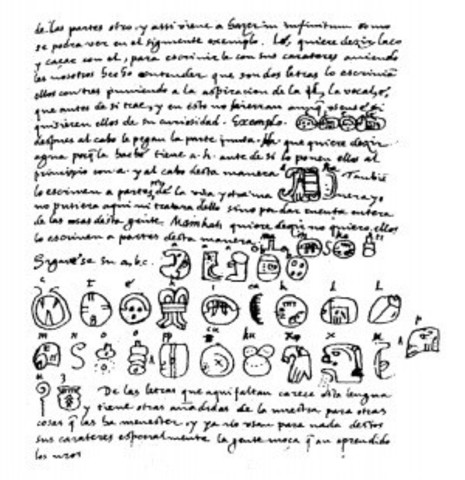 de las partes otro, y assi viene a hazer in infinitum como
se podra ver en el siguiente exemplo. Lé, quiere dezir laço
y caçar con el, para escrivirle con sus carateres aviendo
les nosotros hecho entender que son dos letras lo escrivian
ellos con tres puniendo a la aspiracion de la l, la vocal é,
que antes de si trae, y en esto no hierran aunq̃ usense si
quisieren ellos de su curiosidad. Exemplo.
despues al cabo le pegan la parte junta. Ha que quiere dezir
agua porq̃ la hache tiene a. h. ante de si lo ponen ellos al
principio con a. y al cabo desta manera Tambiē
lo escriven a partes de la una y otra ma nera yo
no pusiera aqui ni tratara dello sino por dar cuenta entera
de las cosas desta gente. Mainkati quiere dezir no quiero, ellos
lo escriven a partes desta manera
Siguese su a. b. c.
De las letras que aqui faltan carece esta lengua
y tiene otras añadidas de la nuestra para otras
cosas q̃ las ha menester, y ya no usan para nada destos
sus carateres especialmente la gente moça q̃ an aprendido
los nros